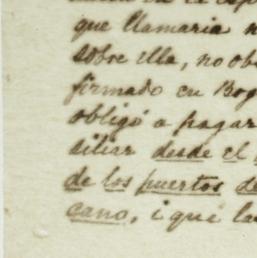 que llamaria n
sobre ella, no ob
firmado en Bog
obligó a pagar
siliar desde el
de los puertos de
cano, i que la